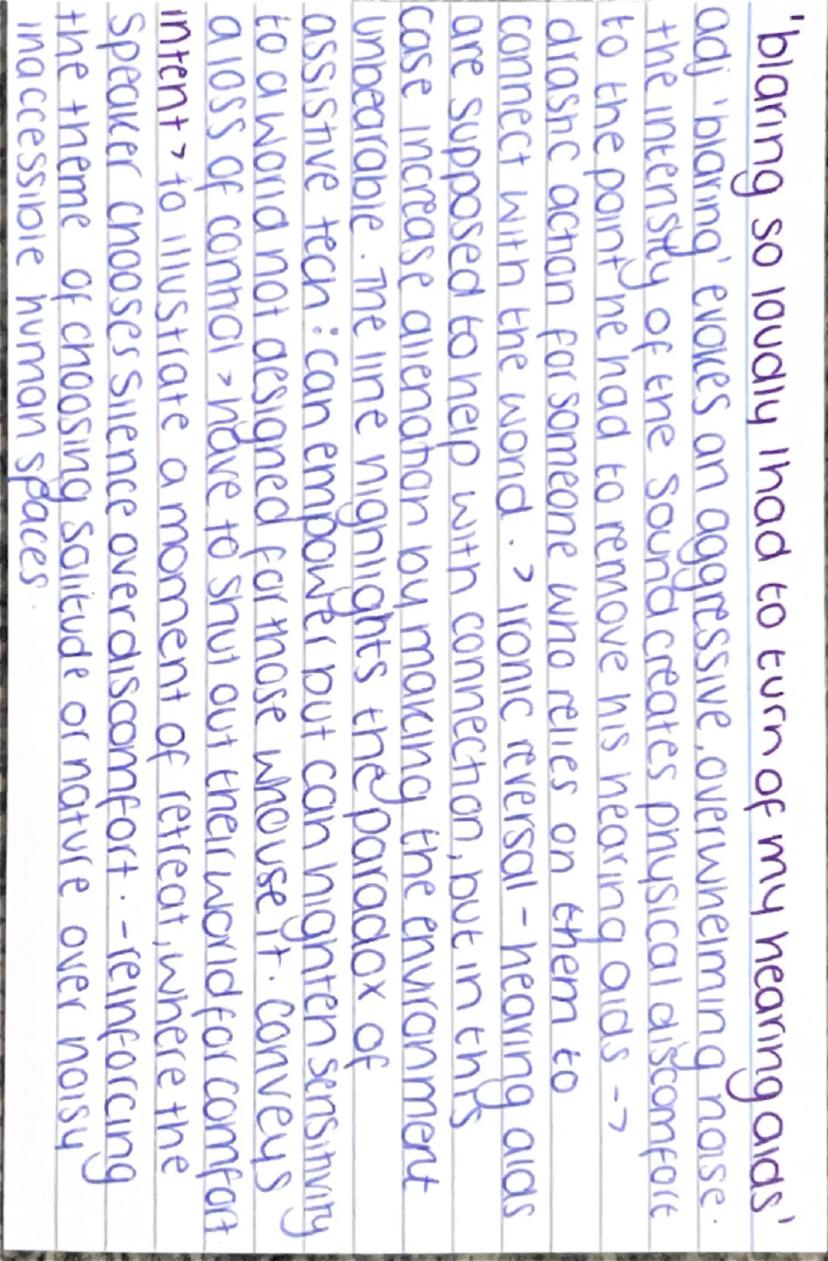 'blaring so loudly I had to turn of my hearing aids'
adj 'blaring' evokes an aggressive, overwhelming noise.
the intensity of the sound creates physical discomfort
to the point he had to remove his hearing aids ->
drastic action for someone who relies on them to
connect with the world. > ironic reversal - hearing aids
are supposed to help with connection, but in this
case increase alienation by making the environment
unbearable. The line highlights the paradox of
assistive tech: can empower but can highten sensitivity
to a world not designed for those who use it. conveys
a loss of control > have to shut out their world for comfort.
intent > to illustrate a moment of retreat, where the
speaker chooses silence over discomfort. - reinforcing
the theme of choosing solitude or nature over noisy
inaccessible human spaces.